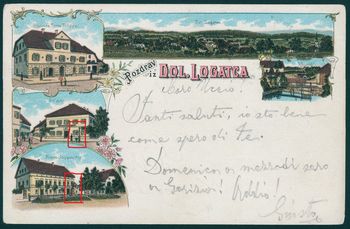 Pozdrav iz DOL. LOGATCA
Caro Nerio!
Tanti saluti, io sto bene
come spero di te.
Domenica a mezzodì saro
a Gorizia! Addio!